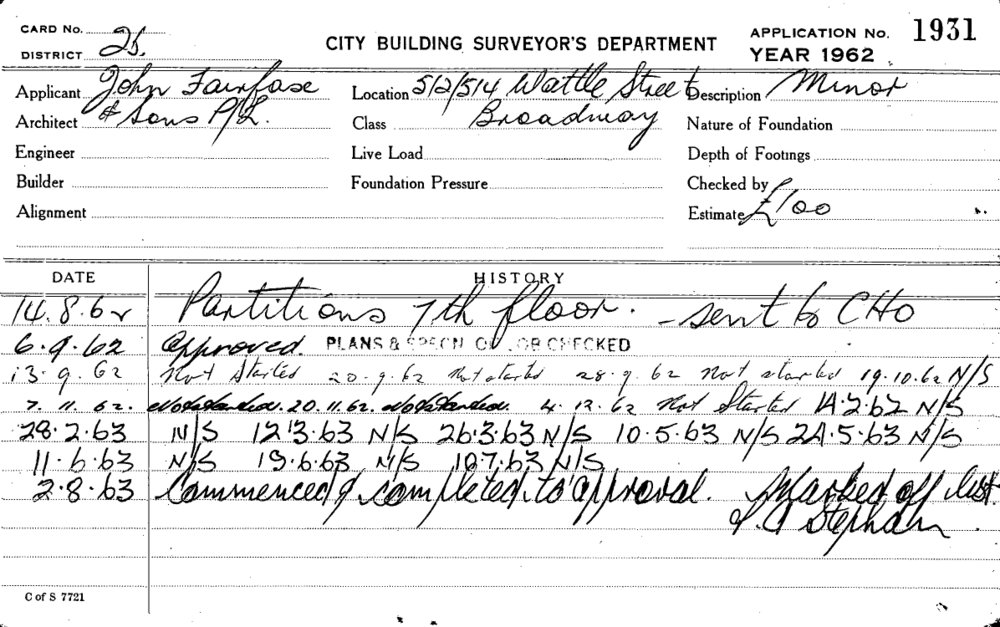 CARD No. 25.
DISTRICT
CITY BUILDING SURVEYOR'S DEPARTMENT
APPLICATION No. 1931
YEAR 1962
Applicant John Fairfase
Location 512/514 Wattle Street
Description Minor
Architect & Sons P/L.
Class Broadway
Nature of Foundation
Engineer
Live Load
Depth of Footings
Builder
Foundation Pressure
Checked by
Alignment
Estimate £100
DATE HISTORY
14.8.62 Partitions 7th floor. - sent to CHO
6.9.62 Approved. PLANS & SPECN ON JOB CHECKED
13.9.62 Not Started 20.9.62 Not started 28.9.62 Not started 19.10.62 N/S
7.11.62. Not Started. 20.11.62. Not Started. 4.12.62 Not Started 14.2.62 N/S
28.2.63 N/S 12.3.63 N/S 26.3.63 N/S 10.5.63 N/S 24.5.63 N/S
11.6.63 N/S 19.6.63 N/S 10.7.63 N/S
2.8.63 Commenced & completed to approval. Marked off list.
Stephan
C of S 7721